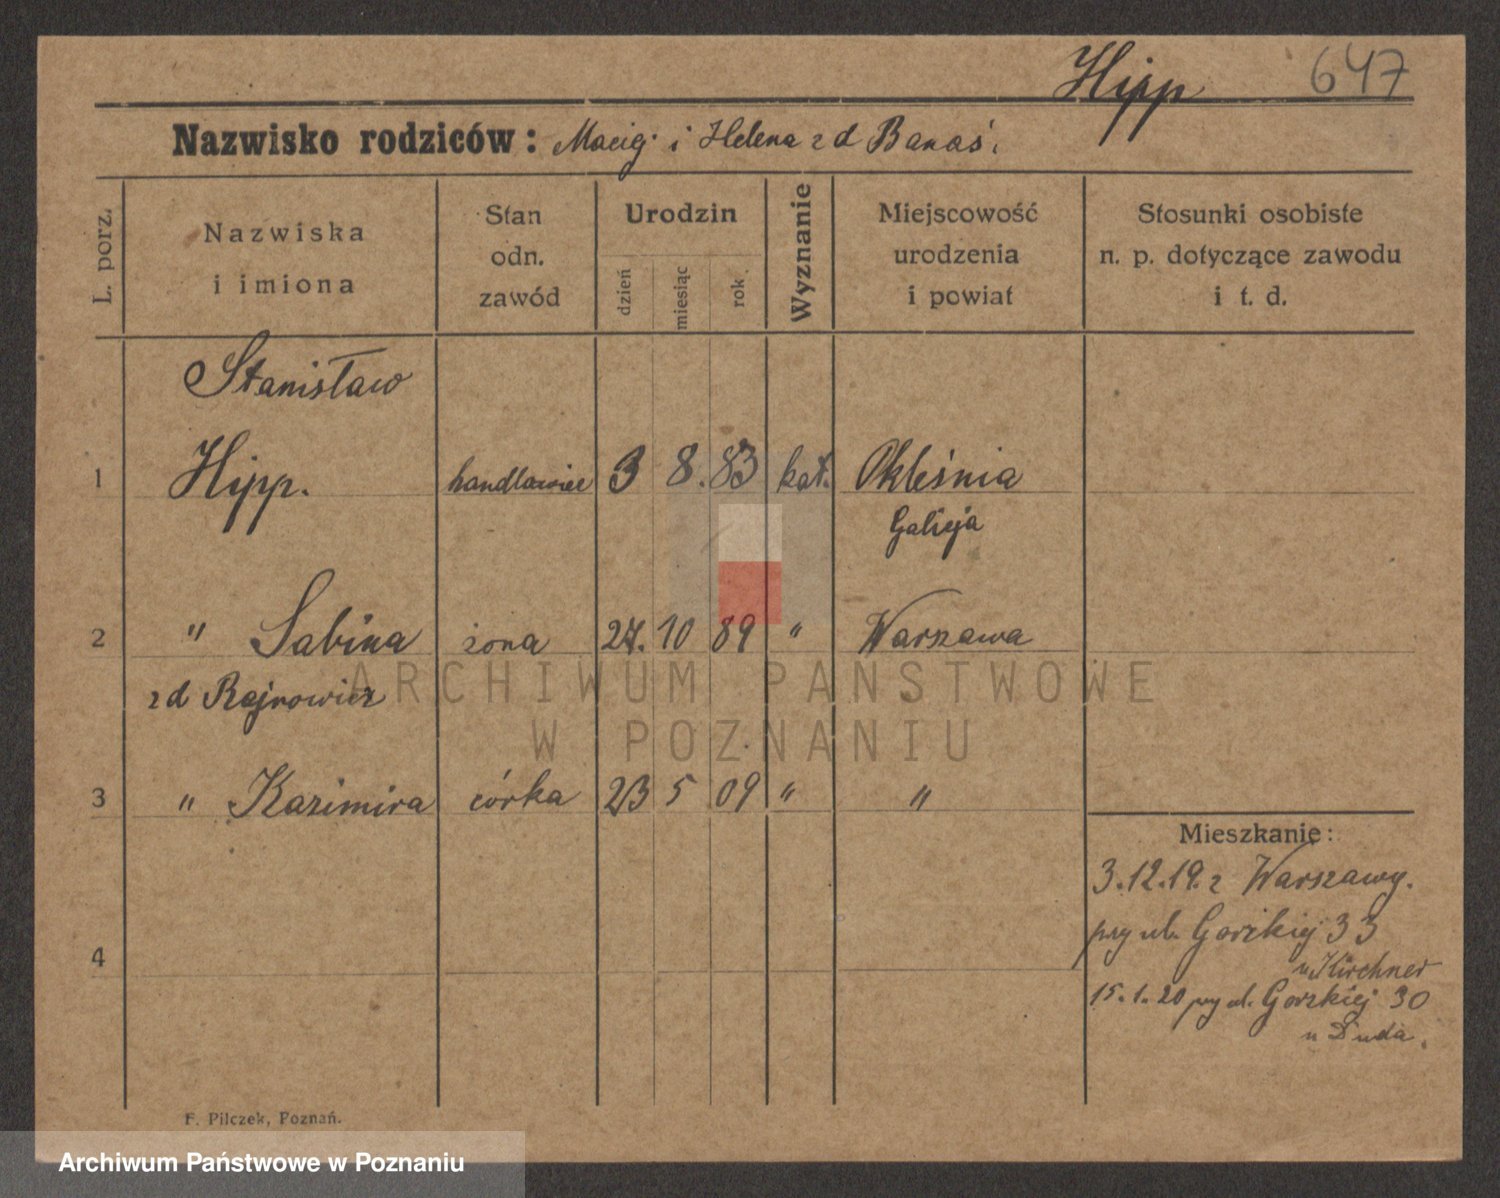 Hipp 647
Nazwisko rodziców: Maciej i Helena z d Banaś.
L. porz.
Nazwiska
i imiona
Stan
odn.
zawód
Urodzin
dzień
miesiąc
rok
Wyznanie
Miejscowość
urodzenia
i powiat
Stosunki osobiste
n. p. dotyczące zawodu
i t. d.
Stanisław
1 Hipp. handlowiec 3 8. 83 kat. Okleśnia
Galicja
2 " Sabina żona 27. 10 89 " Warszawa
z d Rajnowicz
ARCHIWUM PAŃSTWOWE
W POZNANIU
3 " Kazimira córka 23 5 09 " "
Mieszkanie:
3.12.19. z Warszawy.
przy ul. Gorzkiej 33
u Kirchner
4
15.1.20 przy ul. Gorzkiej 30
u Duda.
F. Pilczek, Poznań.
Archiwum Państwowe w Poznaniu